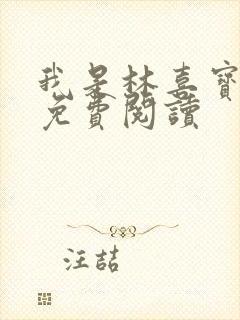 我是林喜寶
免費閱讀
汪喆